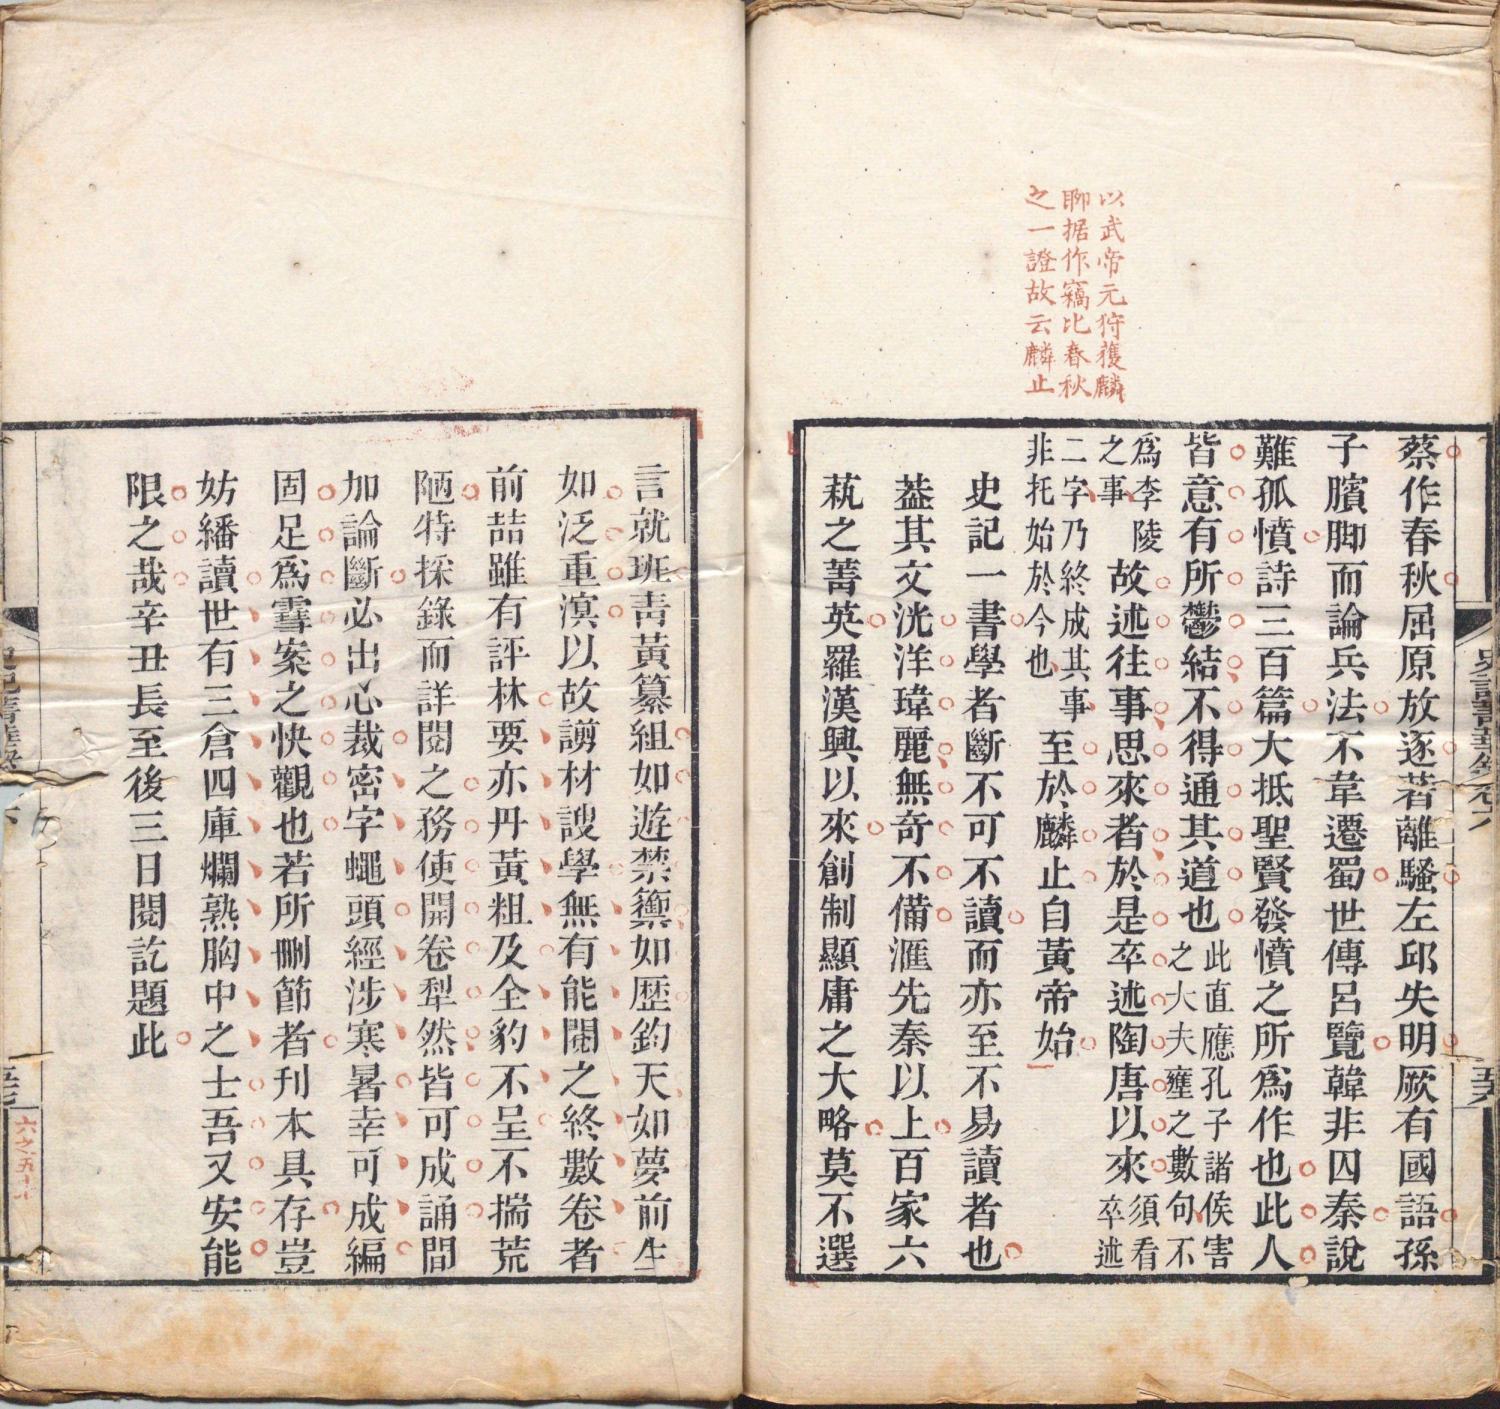 以武帝元狩獲麟
聊据作竊比春秋
之一證故云麟止
蔡作春秋屈原放逐著離騷左邱失明厥有國語孫
子臏脚而論兵法不韋遷蜀世傳呂覽韓非囚秦說
難孤憤詩三百篇大抵聖賢發憤之所為作也此人
皆意有所鬱結不得通其道也此直應孔子諸侯害
之大夫壅之數句不
須看卒述
為李陵
之事
故述往事思來者於是卒述陶唐以來
二字乃終成其事
非托始於今也
至於麟止自黃帝始
史記一書學者斷不可不讀而亦至不易讀者也
葢其文洸洋瑋麗無奇不備滙先秦以上百家六
蓺之菁英羅漢興以來創制顯庸之大略莫不選
史記菁華錄卷六
五十六
言就班青黃纂組如遊禁籞如歷鈞天如夢前生
如泛重溟以故謭材謏學無有能閱之終數卷者
前喆雖有評林要亦丹黃粗及全豹不呈不揣荒
陋特採錄而詳閱之務使開卷犁然皆可成誦間
加論斷必出心裁密字蠅頭經涉寒暑幸可成編
固足為霏案之快觀也若所刪節者刊本具存豈
妨繙讀世有三倉四庫爛熟胸中之士吾又安能
限之哉辛丑長至後三日閱訖題此
六之五十七